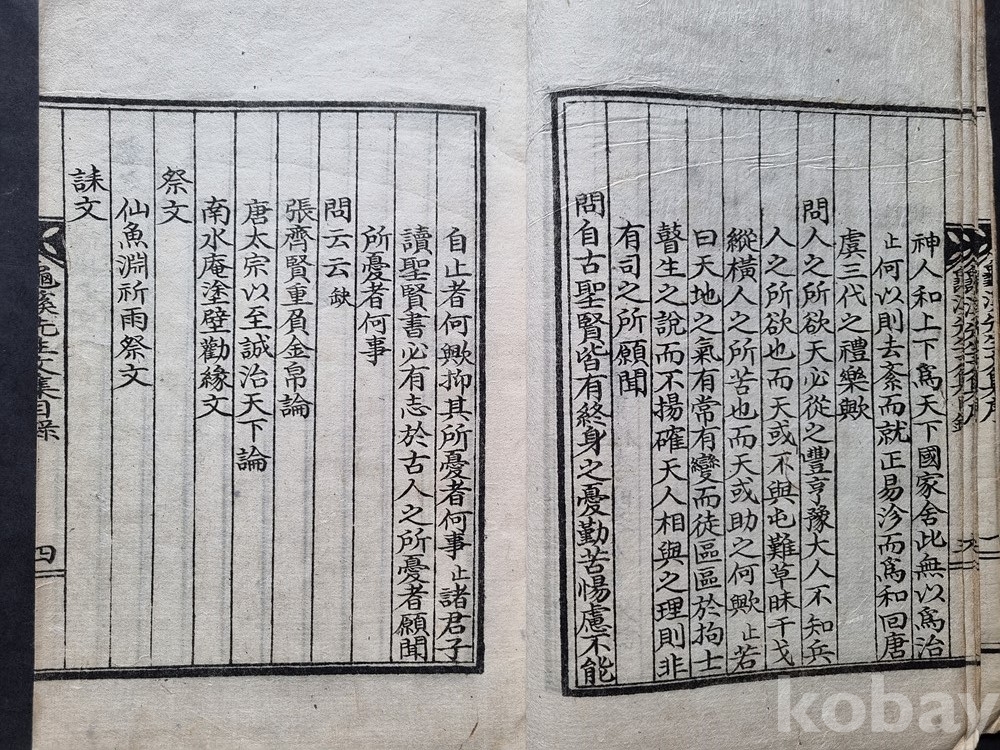 神人和上下爲天下國家舍此無以爲治
止何以則去紊而就正易沴而爲和回唐
虞三代之禮樂歟
問人之所欲天必從之豐亨豫大人不知兵
人之所欲也而天或不與屯難草昧干戈
縱橫人之所苦也而天或助之何歟止若
曰天地之氣有常有變而徒區區於拘士
瞽生之說而不揚確天人相與之理則非
有司之所願聞
問自古聖賢皆有終身之憂勤苦惕慮不能
自止者何歟抑其所憂者何事止諸君子
讀聖賢書必有志於古人之所憂者願聞
所憂者何事
問云云缺
張齊賢重負金帛論
唐太宗以至誠治天下論
南水庵塗壁勸緣文
祭文
仙魚淵祈雨祭文
誄文
龜溪先生文集目錄
四
kobay